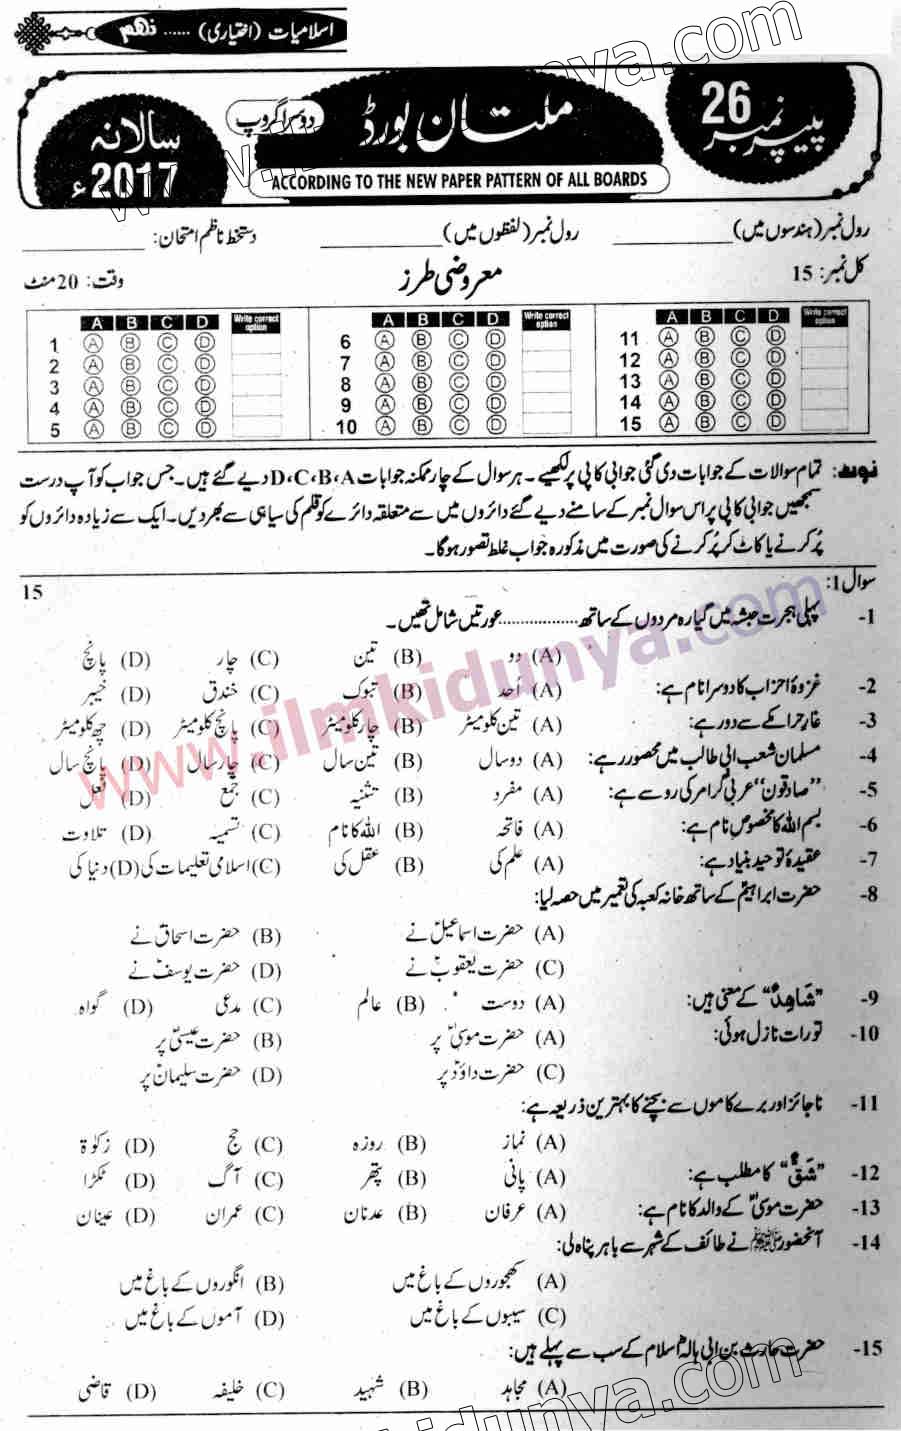 اسلامیات (اختیاری) ...... نہم
پیپر نمبر 26
ملتان بورڈ
دوسرا گروپ
سالانہ 2017ء
ACCORDING TO THE NEW PAPER PATTERN OF ALL BOARDS
رول نمبر (ہندسوں میں) ____________ رول نمبر (لفظوں میں) ____________ دستخط ناظم امتحان: ____________
کل نمبر: 15 معروضی طرز وقت: 20 منٹ
A B C D Write correct option A B C D Write correct option A B C D Write correct option
1 A B C D 6 A B C D 11 A B C D
2 A B C D 7 A B C D 12 A B C D
3 A B C D 8 A B C D 13 A B C D
4 A B C D 9 A B C D 14 A B C D
5 A B C D 10 A B C D 15 A B C D
نوٹ: تمام سوالات کے جوابات دی گئی جوابی کاپی پر لکھیے۔ ہر سوال کے چار ممکنہ جوابات D، C، B، A دیے گئے ہیں۔ جس جواب کو آپ درست
سمجھیں جوابی کاپی پر اس سوال نمبر کے سامنے دیے گئے دائروں میں سے متعلقہ دائرے کو قلم کی سیاہی سے بھر دیں۔ ایک سے زیادہ دائروں کو
پُر کرنے یا کاٹ کر پُر کرنے کی صورت میں مذکورہ جواب غلط تصور ہوگا۔
سوال 1: 15
1- پہلی ہجرت حبشہ میں گیارہ مردوں کے ساتھ .................. عورتیں شامل تھیں۔
(A) دو (B) تین (C) چار (D) پانچ
2- غزوۂ احزاب کا دوسرا نام ہے: (A) اُحد (B) تبوک (C) خندق (D) خیبر
3- غارِ حرا مکے سے دور ہے: (A) تین کلومیٹر (B) چار کلومیٹر (C) پانچ کلومیٹر (D) چھ کلومیٹر
4- مسلمان شعب ابی طالب میں محصور رہے: (A) دو سال (B) تین سال (C) چار سال (D) پانچ سال
5- ”صادقون“ عربی گرامر کی رو سے ہے: (A) مفرد (B) تثنیہ (C) جمع (D) فعل
6- بسم اللہ کا مخصوص نام ہے: (A) فاتحہ (B) اللہ کا نام (C) تسمیہ (D) تلاوت
7- عقیدۂ توحید بنیاد ہے: (A) علم کی (B) عقل کی (C) اسلامی تعلیمات کی (D) دنیا کی
8- حضرت ابراہیمؑ کے ساتھ خانہ کعبہ کی تعمیر میں حصہ لیا:
(A) حضرت اسماعیلؑ نے (B) حضرت اسحاقؑ نے
(C) حضرت یعقوبؑ نے (D) حضرت یوسفؑ نے
9- ”شَاھِدٌ“ کے معنی ہیں: (A) دوست (B) عالم (C) مدعی (D) گواہ
10- تورات نازل ہوئی: (A) حضرت موسیٰؑ پر (B) حضرت عیسیٰؑ پر
(C) حضرت داؤدؑ پر (D) حضرت سلیمانؑ پر
11- ناجائز اور برے کاموں سے بچنے کا بہترین ذریعہ ہے:
(A) نماز (B) روزہ (C) حج (D) زکوٰۃ
12- ”شَقٌّ“ کا مطلب ہے: (A) پانی (B) پتھر (C) آگ (D) ٹکڑا
13- حضرت موسیٰؑ کے والد کا نام ہے: (A) عرفان (B) عدنان (C) عمران (D) عینان
14- آنحضور ﷺ نے طائف کے شہر سے باہر پناہ لی:
(A) کھجوروں کے باغ میں (B) انگوروں کے باغ میں
(C) سیبوں کے باغ میں (D) آموں کے باغ میں
15- حضرت حارث بن ابی ہالہؓ اسلام کے سب سے پہلے ہیں:
(A) مجاہد (B) شہید (C) خلیفہ (D) قاضی
www.ilmkidunya.com